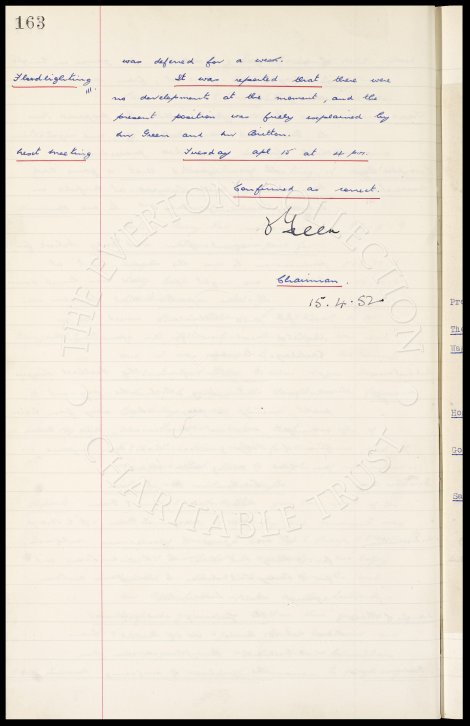 163
was deferred for a week.
Floodlighting It was reported that there were
no developments at the moment, and the
present position was fully explained by
Mr Green and Mr Britton.
Next meeting Tuesday Apl 15 at 4 pm.
Confirmed as correct.
Green
Chairman.
15.4.52
THE EVERTON COLLECTION
CHARITABLE TRUST